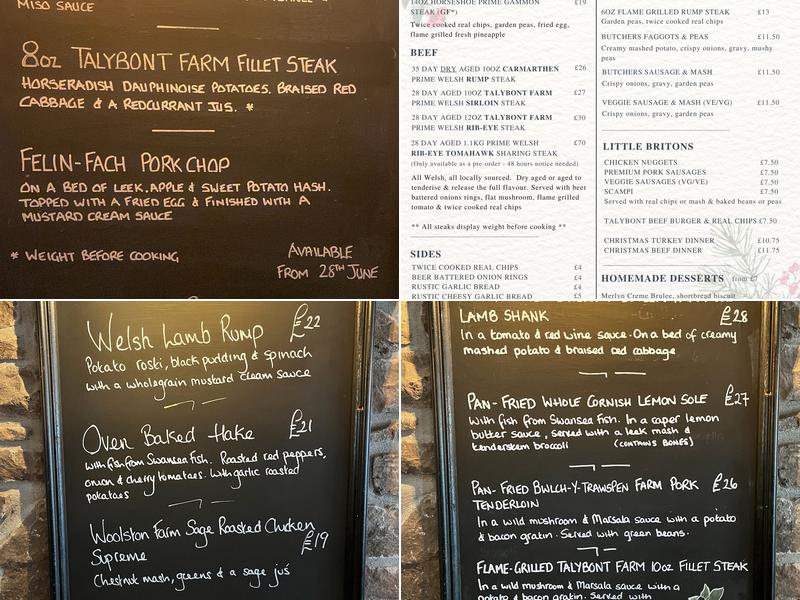 MISO SAUCE
8oz TALYBONT FARM FILLET STEAK
HORSERADISH DAUPHINOISE POTATOES. BRAISED RED
CABBAGE & A REDCURRANT JUS. *
FELIN-FACH PORK CHOP
ON A BED OF LEEK, APPLE & SWEET POTATO HASH.
TOPPED WITH A FRIED EGG & FINISHED WITH A
MUSTARD CREAM SAUCE
* WEIGHT BEFORE COOKING
AVAILABLE
FROM 28TH JUNE
14OZ HORSESHOE PRIME GAMMON £19
STEAK (GF*)
Twice cooked real chips, garden peas, fried egg,
flame grilled fresh pineapple
BEEF
35 DAY DRY AGED 10OZ CARMARTHEN £26
PRIME WELSH RUMP STEAK
28 DAY AGED 10OZ TALYBONT FARM £27
PRIME WELSH SIRLOIN STEAK
28 DAY AGED 12OZ TALYBONT FARM £30
PRIME WELSH RIB-EYE STEAK
28 DAY AGED 1.1KG PRIME WELSH £70
RIB-EYE TOMAHAWK SHARING STEAK
(Only available as a pre-order - 48 hours notice needed)
All Welsh, all locally sourced. Dry aged or aged to
tenderise & release the full flavour. Served with beer
battered onion rings, flat mushroom, flame grilled
tomato & twice cooked real chips
** All steaks display weight before cooking **
SIDES
TWICE COOKED REAL CHIPS £4
BEER BATTERED ONION RINGS £4
RUSTIC GARLIC BREAD £4
RUSTIC CHEESY GARLIC BREAD £5
6OZ FLAME GRILLED RUMP STEAK £13
Garden peas, twice cooked real chips
BUTCHERS FAGGOTS & PEAS £11.50
Creamy mashed potato, crispy onions, gravy, mushy
peas
BUTCHERS SAUSAGE & MASH £11.50
Crispy onions, gravy, garden peas
VEGGIE SAUSAGE & MASH (VE/VG) £11.50
Crispy onions, gravy, garden peas
LITTLE BRITONS
CHICKEN NUGGETS £7.50
PREMIUM PORK SAUSAGES £7.50
VEGGIE SAUSAGES (VG/VE) £7.50
SCAMPI £7.50
Served with real chips or mash & baked beans or peas
TALYBONT BEEF BURGER & REAL CHIPS £7.50
CHRISTMAS TURKEY DINNER £10.75
CHRISTMAS BEEF DINNER £11.75
HOMEMADE DESSERTS from £7
Merlyn Creme Brulee, shortbread biscuit
Welsh Lamb Rump £22
Potato rosti, black pudding & spinach
with a wholegrain mustard cream sauce
Oven Baked Hake £21
with fish from Swansea Fish. Roasted red peppers,
onion & cherry tomatoes. With garlic roasted
potatoes
Woolston Farm Sage Roasted Chicken
Supreme £19
Chestnut mash, greens & a sage jus
LAMB SHANK £28
In a tomato & red wine sauce. On a bed of creamy
mashed potato & braised red cabbage
PAN-FRIED WHOLE CORNISH LEMON SOLE £27
With fish from Swansea Fish. In a caper lemon
butter sauce, served with a leek mash &
tenderstem broccoli (CONTAINS BONES)
PAN-FRIED BWLCH-Y-TRAWSPEN FARM PORK £26
TENDERLOIN
In a wild mushroom & Marsala sauce with a potato
& bacon gratin. Served with green beans.
FLAME-GRILLED TALYBONT FARM 10oz FILLET STEAK
In a wild mushroom & Marsala sauce with a
potato & bacon gratin. Served with